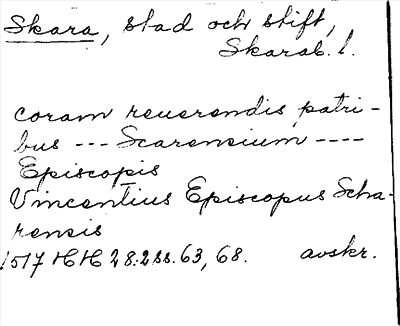 Skara, stad och stift,
Skarab. l.
coram reuerendis patri-
bus --- Scarensium ----
Episcopis
Vincentius Episcopus Scha-
rensis
1517 HH 28:2 ss. 63, 68. avskr.